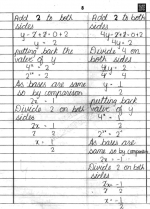 8
Add 2 to both
sides
y - 2 + 2 = 0 + 2
y = 2
putting back the
value of y
As bases are same
so by comparison
2x = 1
Divide 2 on both
sides
2x = 1
2 2
x = 1
2
Add 2 to both
sides
4y - 2 + 2 = 0 + 2
4y = 2
Divide 4 on
both sides
4y = 2
4 4
y = 1
2
putting back
value of y
As bases are
same so by comparison
2x = -1
Divide 2 on both
sides
2x = -1
2 2
x = -1
2